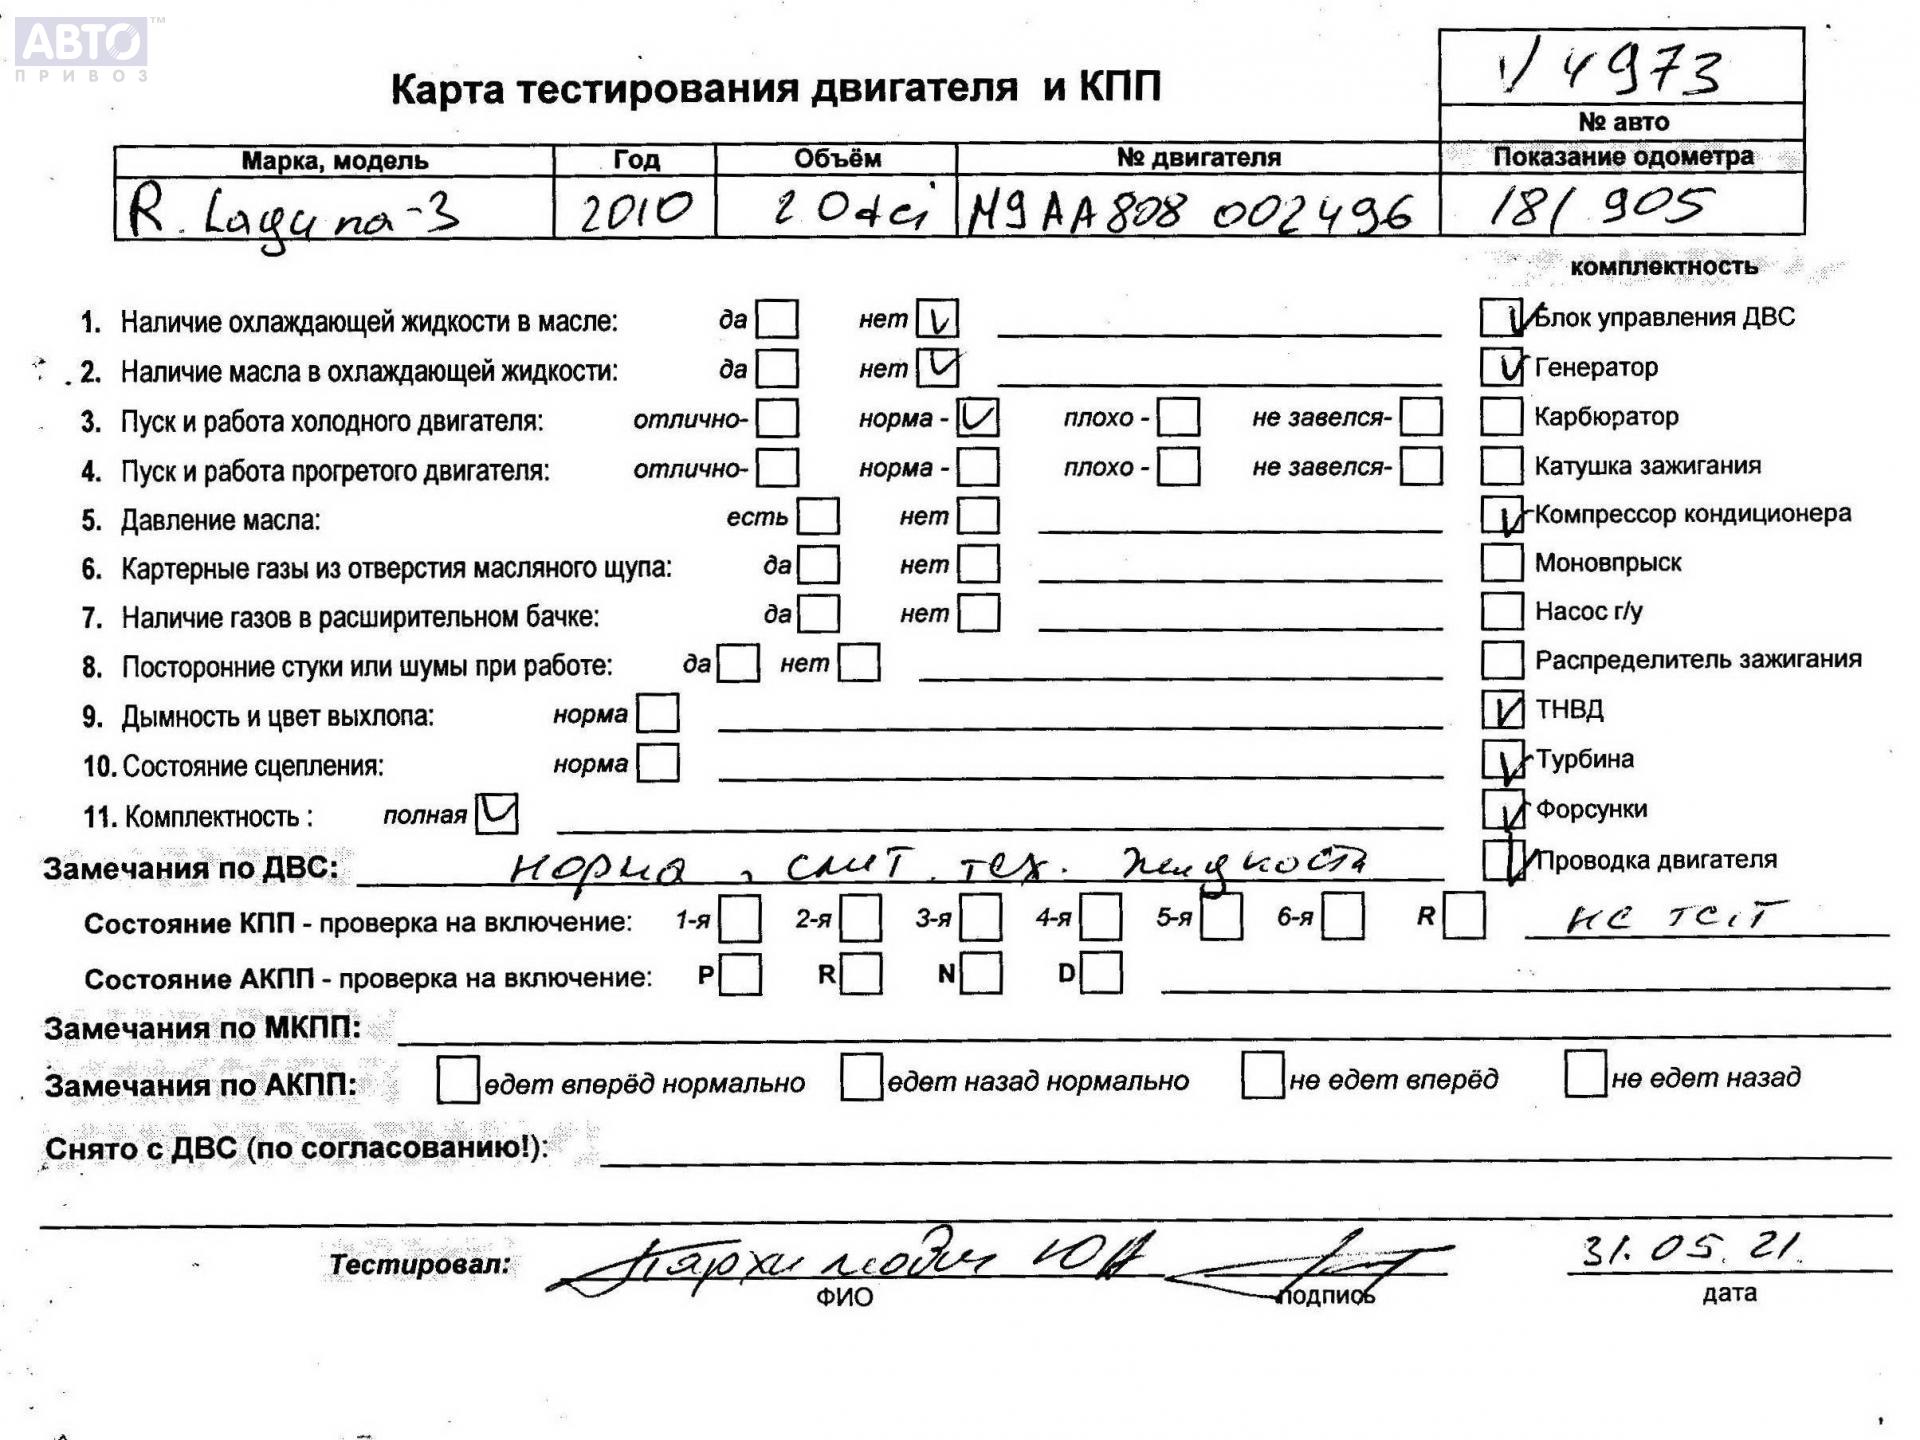 АВТО™
ПРИВОЗ
4973
Карта тестирования двигателя и КПП
№ авто
Марка, модель Год Объём № двигателя Показание одометра
R. Laguna-3 2010 2.0dci M9AA808 002496 181 905
комплектность
1. Наличие охлаждающей жидкости в масле: да нет Блок управления ДВС
2. Наличие масла в охлаждающей жидкости: да нет Генератор
3. Пуск и работа холодного двигателя: отлично- норма - плохо - не завелся- Карбюратор
4. Пуск и работа прогретого двигателя: отлично- норма - плохо - не завелся- Катушка зажигания
5. Давление масла: есть нет Компрессор кондиционера
6. Картерные газы из отверстия масляного щупа: да нет Моновпрыск
7. Наличие газов в расширительном бачке: да нет Насос г/у
8. Посторонние стуки или шумы при работе: да нет Распределитель зажигания
9. Дымность и цвет выхлопа: норма ТНВД
10. Состояние сцепления: норма Турбина
11. Комплектность : полная Форсунки
Замечания по ДВС: норма, слит. тех. жидкости Проводка двигателя
Состояние КПП - проверка на включение: 1-я 2-я 3-я 4-я 5-я 6-я R не тест
Состояние АКПП - проверка на включение: P R N D
Замечания по МКПП:
Замечания по АКПП: едет вперёд нормально едет назад нормально не едет вперёд не едет назад
Снято с ДВС (по согласованию!):
Тестировал: 31.05.21.
ФИО подпись дата